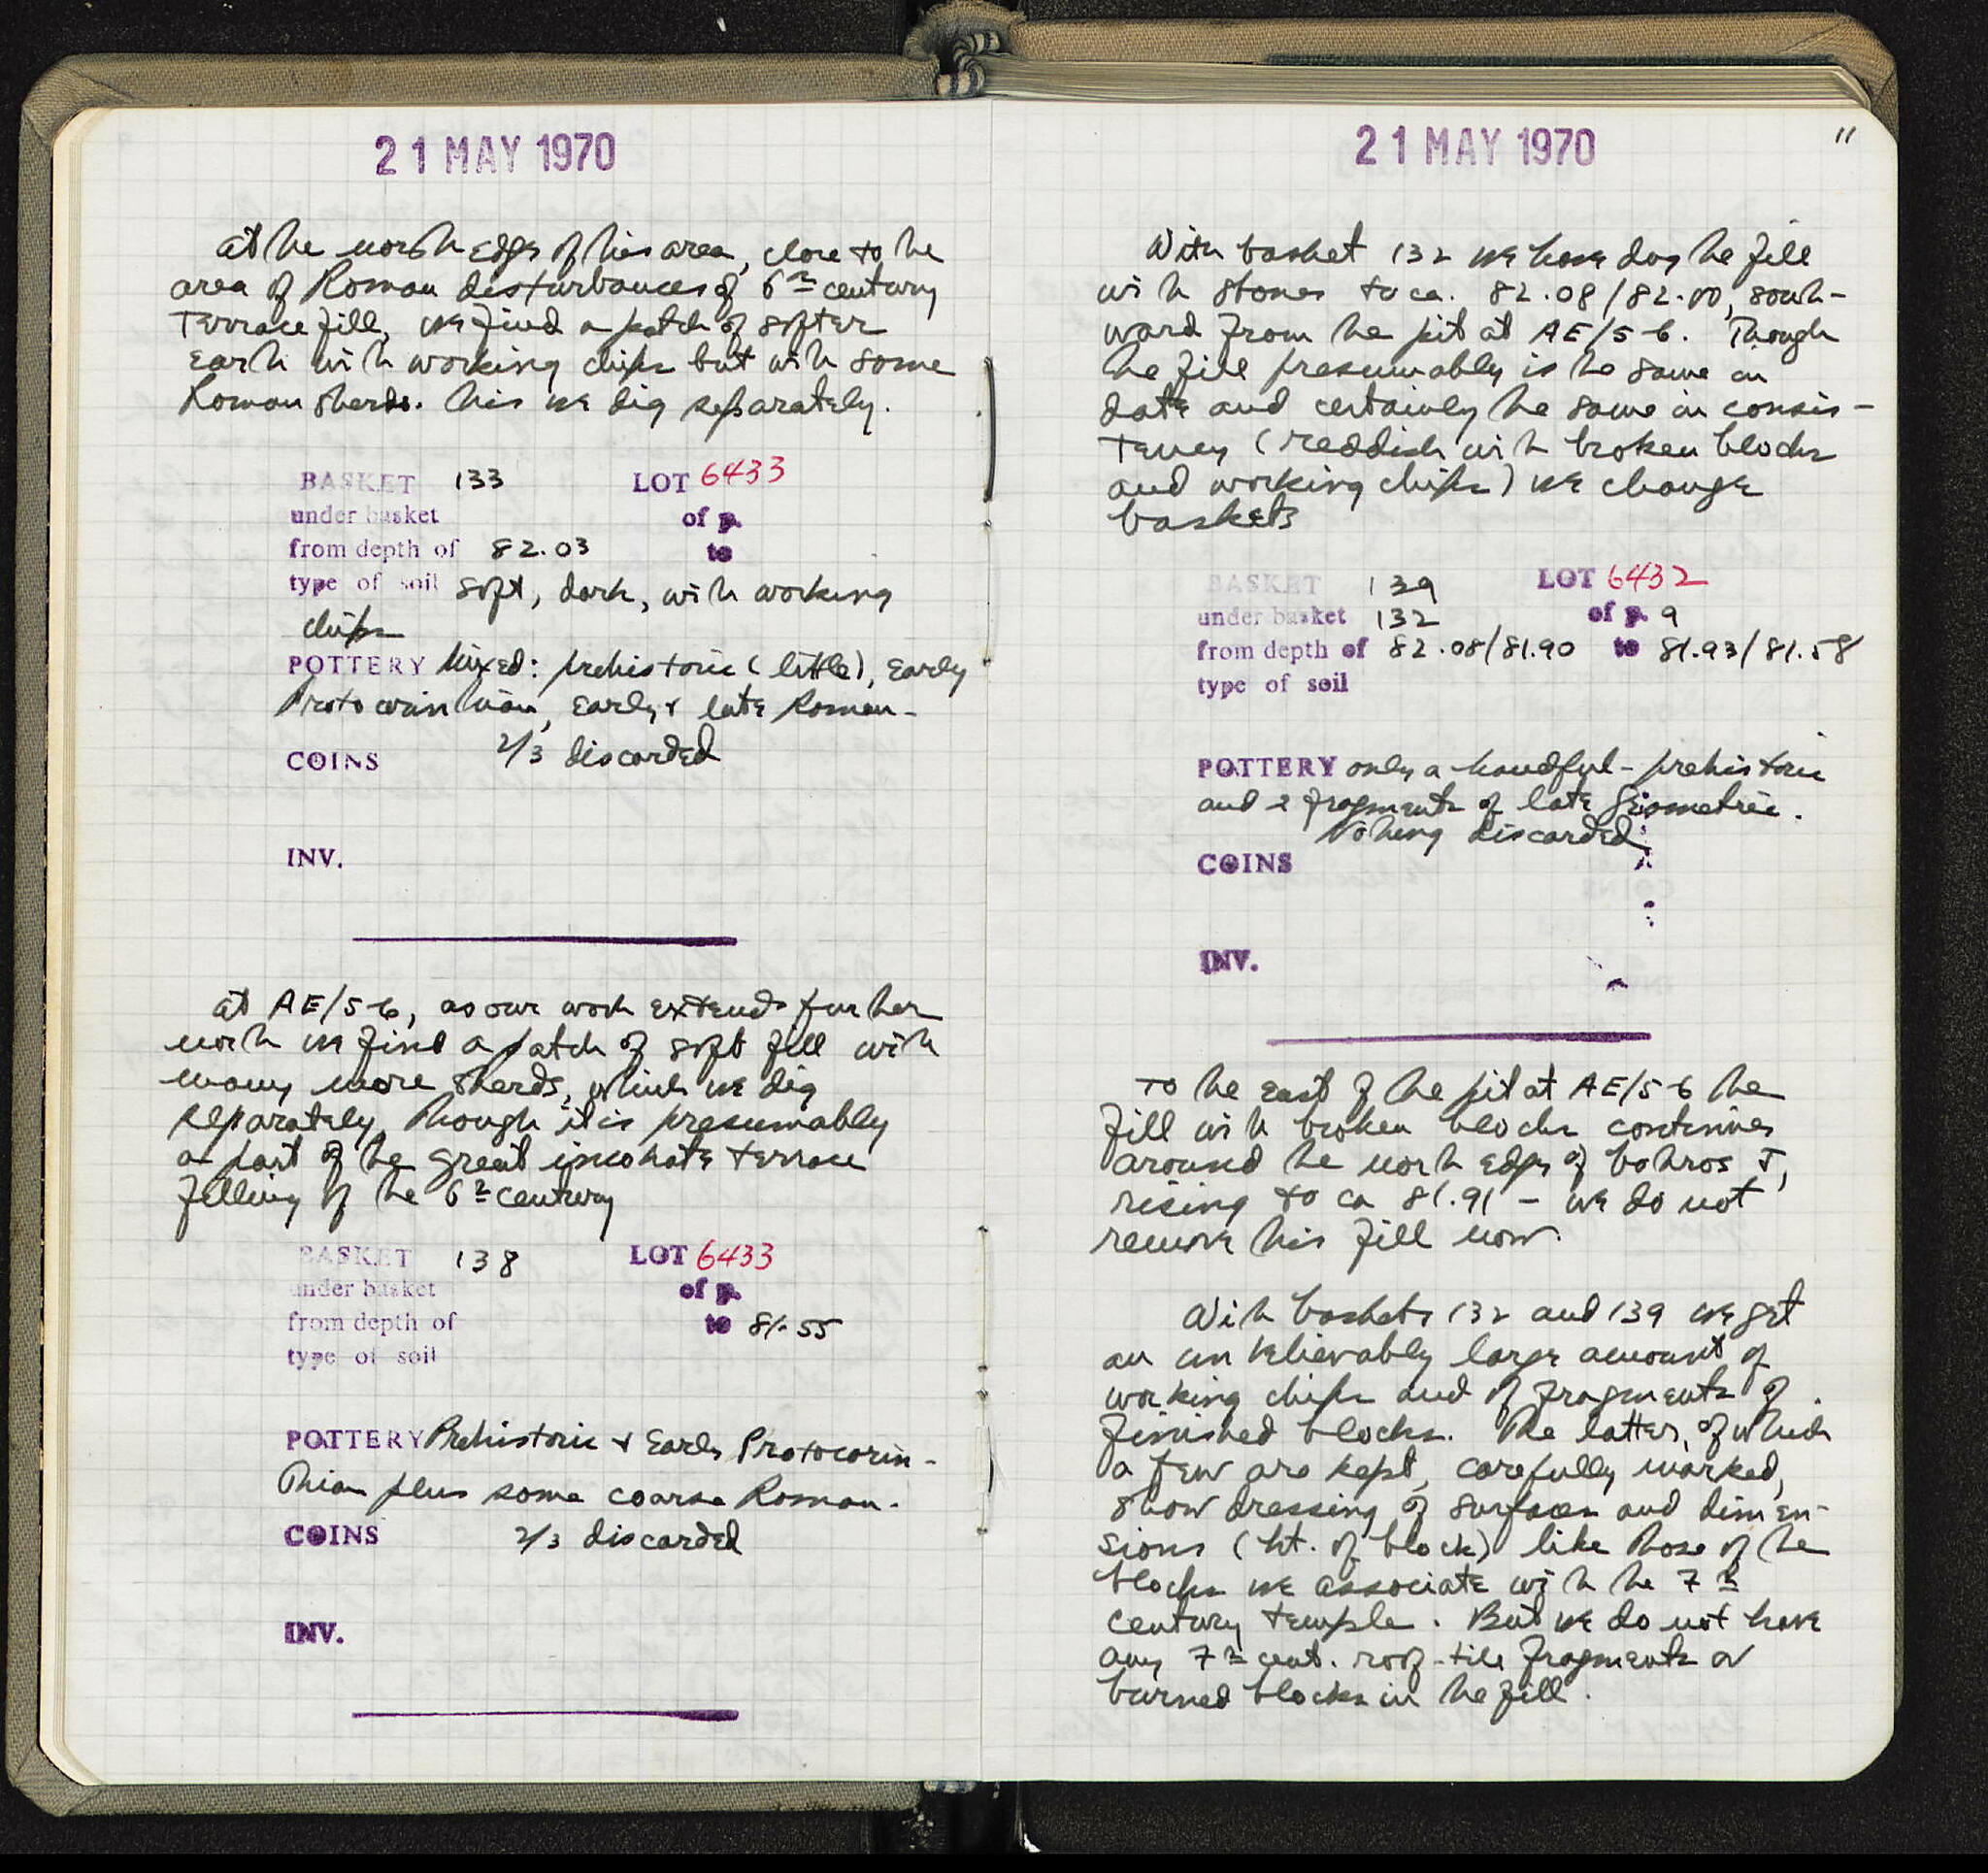 21 MAY 1970
At the north edge of this area, close to the
area of Roman disturbances of 6th century
Terrace fill, we find a patch of softer
earth with working chips but with some
Roman sherds. This we dig separately.
BASKET 133 LOT 6433
under basket of p.
from depth of 82.03 to
type of soil soft, dark, with working
chips
POTTERY Mixed: prehistoric (little), Early
Protocorinthian, Early & late Roman -
2/3 discarded
COINS
INV.
At AE/5-6, as our work extends further
north we find a patch of soft fill with
many more sherds, which we dig
separately, though it is presumably
a part of the great terrace
filling of the 6th century
BASKET 138 LOT 6433
under basket of p.
from depth of to 81.55
type of soil
POTTERY Prehistoric & Early Protocorin-
thian plus some coarse Roman.
COINS 2/3 discarded
INV.
21 MAY 1970
11
With basket 132 we have dug the fill
with stones to ca. 82.08/82.00, south-
ward from the pit at AE/5-6. Though
the fill presumably is the same in
date and certainly the same in consis-
tency (reddish with broken blocks
and working chips) we change
baskets
BASKET 139 LOT 6432
under basket 132 of p. 9
from depth of 82.08/81.90 to 81.93/81.58
type of soil
POTTERY only a handful - prehistoric
and 2 fragments of late Geometric.
Nothing discarded
COINS
INV.
To the east of the pit at AE/5-6 the
fill with broken blocks continues
around the north edge of bothros J,
rising to ca 81.91 - we do not
remove this fill now.
With baskets 132 and 139 we get
an unbelievably large amount of
working chips and of fragments of
finished blocks. The latter, of which
a few are kept, carefully marked,
show dressing of surfaces and dimen-
sions (ht. of block) like those of the
blocks we associate with the 7th
century temple. But we do not have
any 7th cent. roof-tile fragments or
burned blocks in the fill.